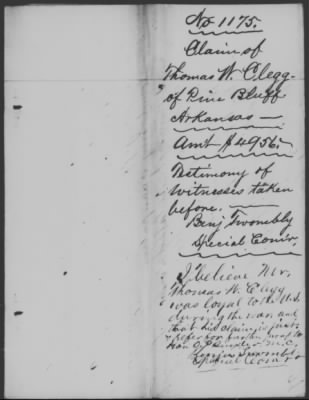 No 1175.
Claim of
Thomas W. Clegg
of Pine Bluff
Arkansas —
Amt $4956.
Testimony of
witnesses taken
before. —
Benj Twombly
Special Com'r.
I believe Mr.
Thomas W. Clegg
was loyal to the U.S.
during the war and
that his claim is just
Hon M.C.
Benjn Twombly
Special Com'r